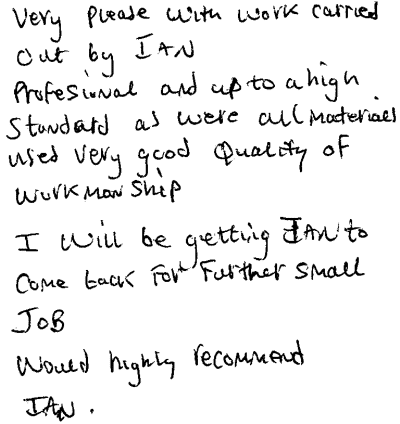 Very Please with work carried
out by IAN
Profesional and up to a high
Standard as were all materials
used very good Quality of
workmanship
I will be getting IAN to
Come back For Further small
JOB
Would highly recommend
IAN.